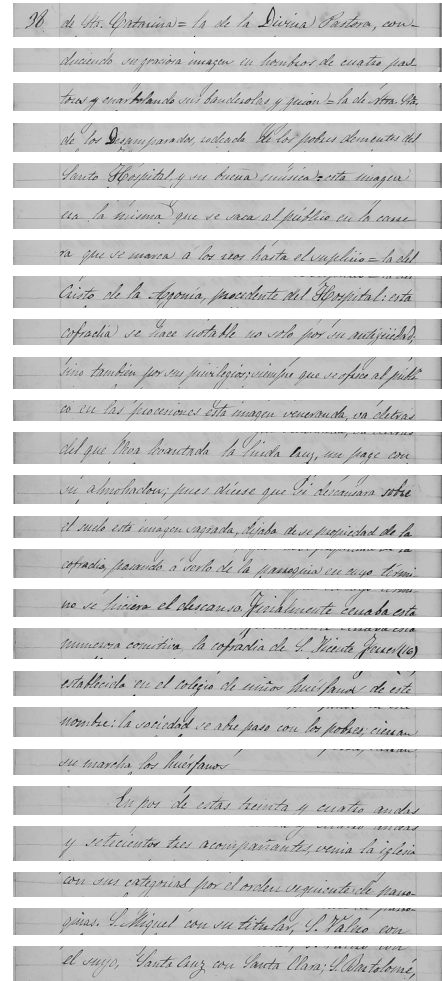 38 de Sta. Catarina = la de la Divina Pastora, con-
duciendo su graciosa imagen en hombros de cuatro pas-
tores y enarbolando sus banderolas, y guion = la de Ntra. Sra.
de los Desamparados, rodeada de los pobres dementes del
Santo Hospital, y su buena música = esta imagen
era la misma que se saca al público en la carre-
ra que se marca á los reos hasta el suplicio = la del
Cristo de la Agonía, procedente del Hospital: esta
cofradia se hace notable no solo por su antigüedad,
sino tambien por sus privilegios; siempre que se ofrece al públi-
co en las procesiones esta imagen veneranda, vá detras
del que lleva levantada la linda cruz, un page con
su almohadon; pues dicese que si descansara sobre
el suelo esta imagen sagrada, dejaba de se propiedad de la
cofradia, pasando á serlo de la parroquia en cuyo térmi-
no se hiciera el descanso. Finalmente cerraba esta
numerosa comitiva la cofradia de S. Vicente Ferrer (16)
establecida en el colegio de niños huérfanos de este
nombre: la sociedad se abre paso con los pobres; cierran
su marcha los huérfanos
En pos de estas treinta y cuatro andas
y setecientos tres acompañantes, venia la iglesia
con sus categorias por el orden siguiente de parro-
quias. S. Miguel con su titular, S. Valero con
el suyo, Santa Cruz con Santa Clara; S. Bartolomé,